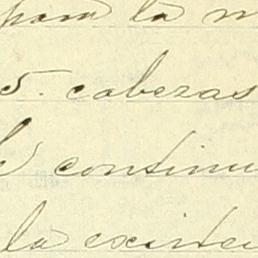 para la
5. cabezas
continu
la existen